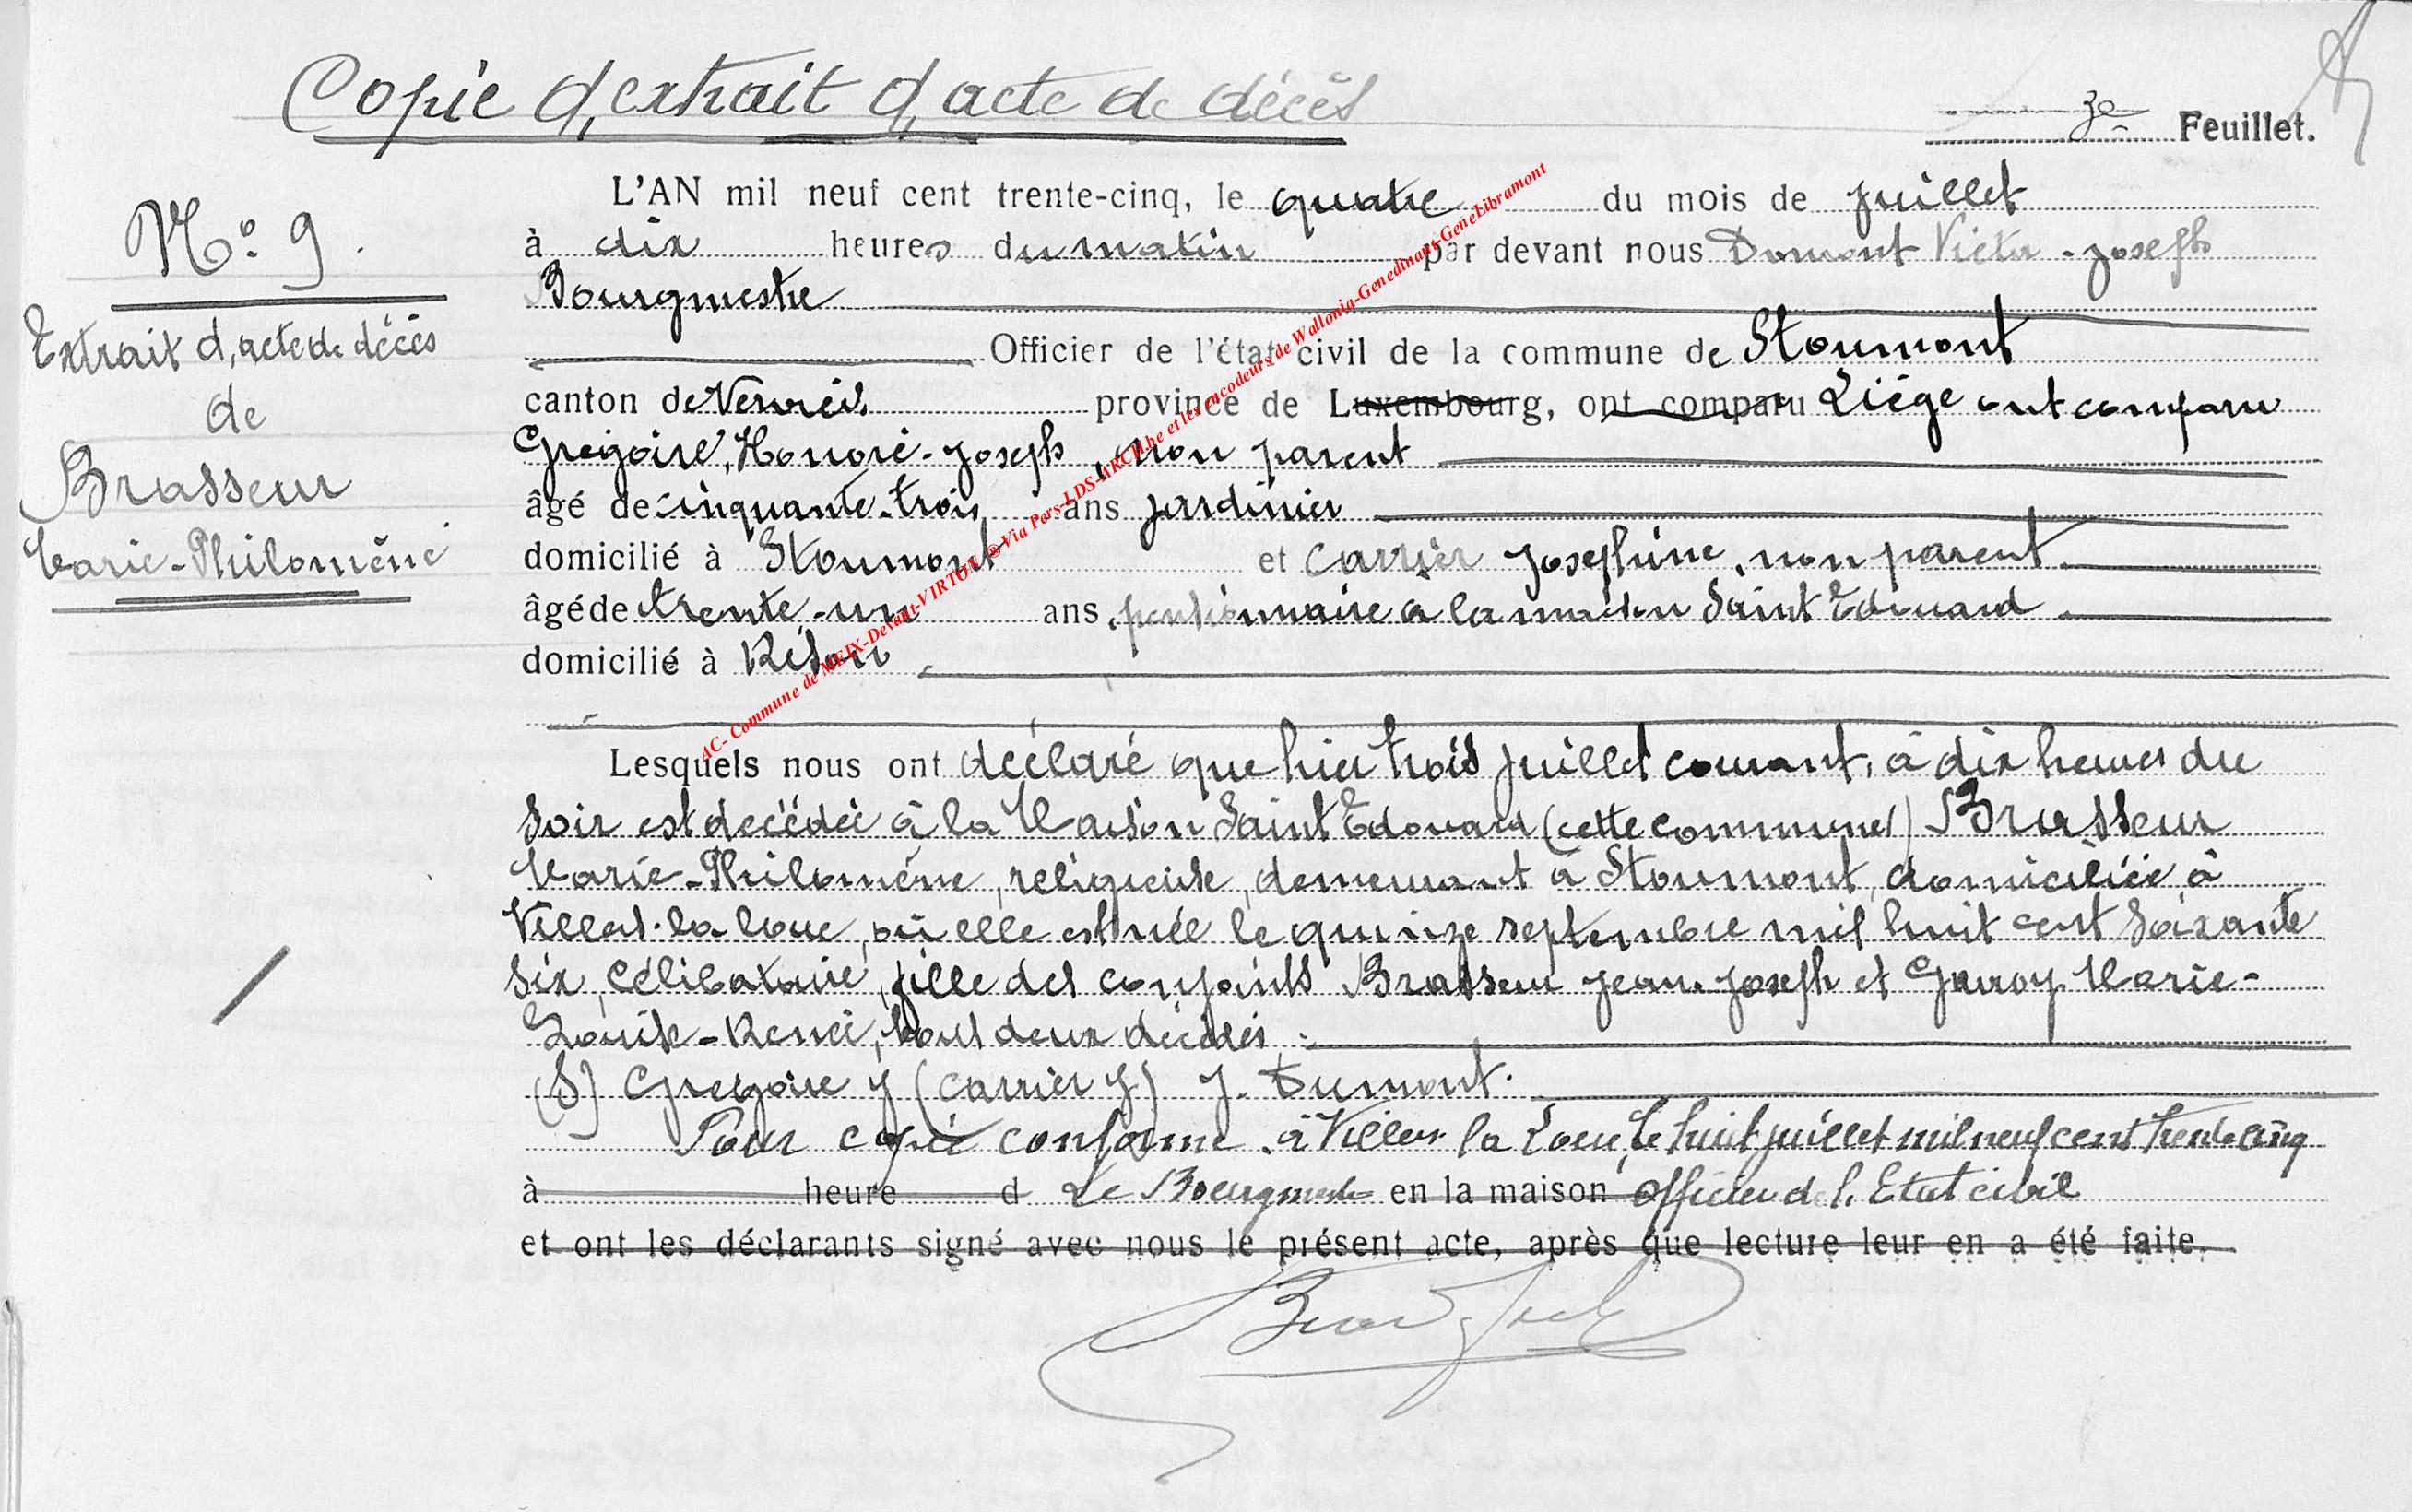 Copie d'extrait d'acte de décès
3e Feuillet.
L'AN mil neuf cent trente-cinq, le quatre du mois de juillet
N° 9.
à dix heures du matin par devant nous Dumont Victor-Joseph
Bourgmestre
Extrait d'acte de décès
Officier de l'état civil de la commune de Stoumont
de
canton de Verviers province de Luxembourg, ont comparu Liège ont comparu
Grégoire, Honoré-Joseph, non parent
Brasseur
âgé de cinquante-trois ans jardinier
Marie-Philomène
domicilié à Stoumont et Carrier Joséphine, non parent
âgé de trente-un ans, pensionnaire à la maison Saint Edouard
domicilié à
Lesquels nous ont déclaré que hier trois juillet courant, à dix heures du
soir est decédée à la Maison Saint Edouard (cette commune) Brasseur
Marie-Philomène, religieuse, demeurant à Stoumont, domiciliée à
Villers-la-loue, où elle est née le quinze septembre mil huit cent soixante
six, célibataire, fille des conjoints Brasseur Jean-Joseph et Gavroy Marie-
Louise-Renée, tous deux décédés.
(S) Grégoire J (Carrier J) J. Dumont.
Pour copie conforme à Villers-la-Loue, le huit juillet mil neuf cent trente cinq
à heure d Le Bourgmestre en la maison Officier de l'Etat civil
et ont les déclarants signé avec nous le présent acte, après que lecture leur en a été faite.
AC- Commune de MEIX-Devant-VIRTON ©Via Pers-LDS-ARCH.be et les encodeurs de Wallonia-Genedinant-GeneLibramont